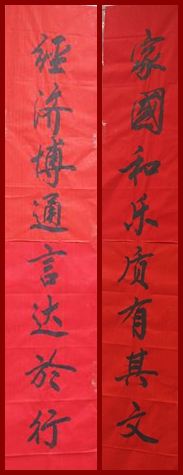 家國和乐质有其文
經济博通言达於行